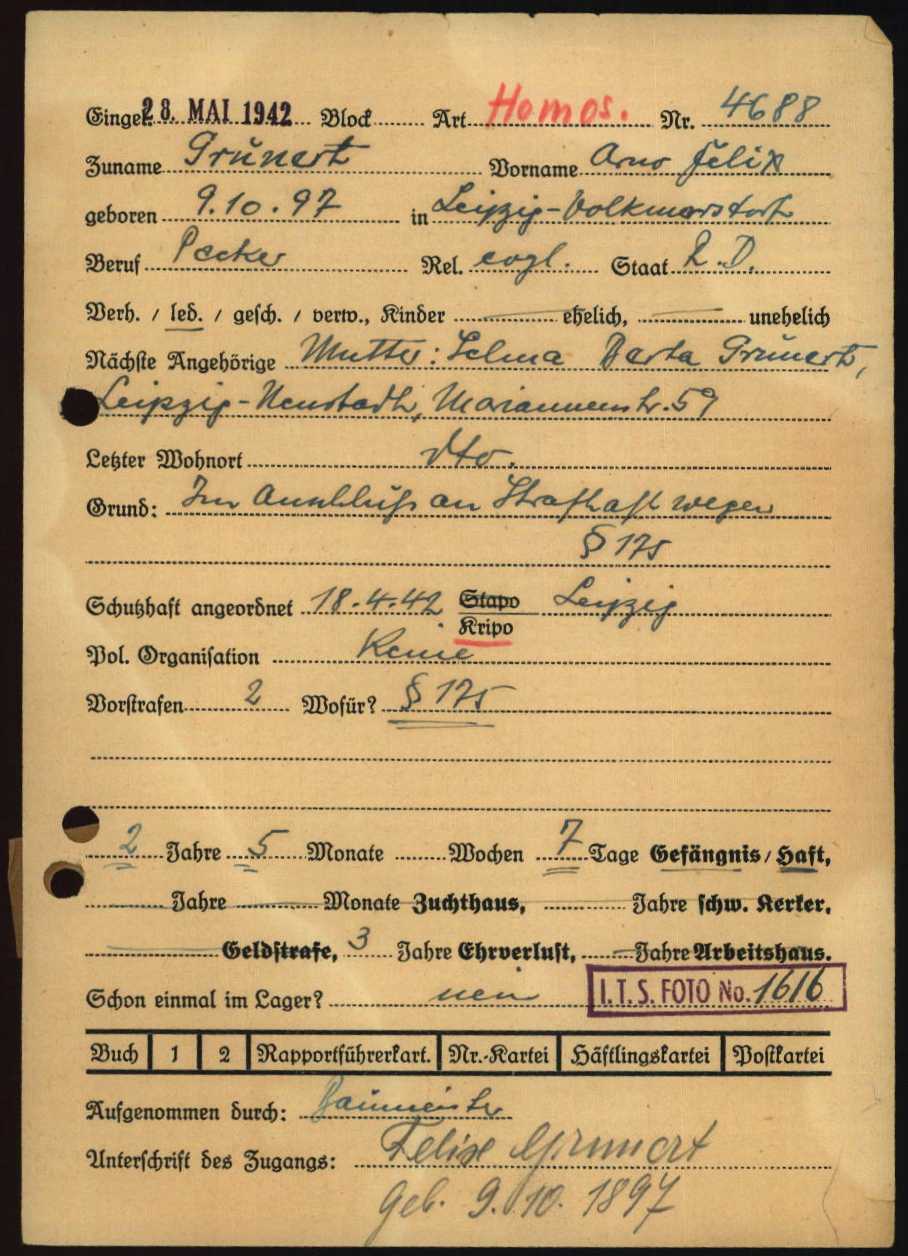 Einge. 28. MAI 1942 Block Art Homos. Nr. 4688
Zuname Grünert Vorname Arno Felix
geboren 9.10.97 in Leipzig-Volkmarsdorf
Beruf Packer Rel. evgl. Staat R.D.
Verh. / led. / gesch. / verw., Kinder ehelich, unehelich
Nächste Angehörige Mutter: Selma Berta Grünert,
Leipzig-Neustadt, Mariannenstr. 59
Letzter Wohnort dto.
Grund: Im Anschluß an Strafhaft wegen
§ 175
Schutzhaft angeordnet 18.4.42 Stapo Leipzig
Kripo
Pol. Organisation Keine
Vorstrafen 2 Wofür? § 175
2 Jahre 5 Monate Wochen 7 Tage Gefängnis / Haft,
Jahre Monate Zuchthaus, Jahre schw. Kerker,
Geldstrafe, 3 Jahre Ehrverlust, Jahre Arbeitshaus.
Schon einmal im Lager? nein I.T.S. FOTO No. 1616
Buch 1 2 Rapportführerkart. Nr.-Kartei Häftlingskartei Postkartei
Aufgenommen durch: Baumeister
Unterschrift des Zugangs: Felix Grünert
geb. 9.10.1897